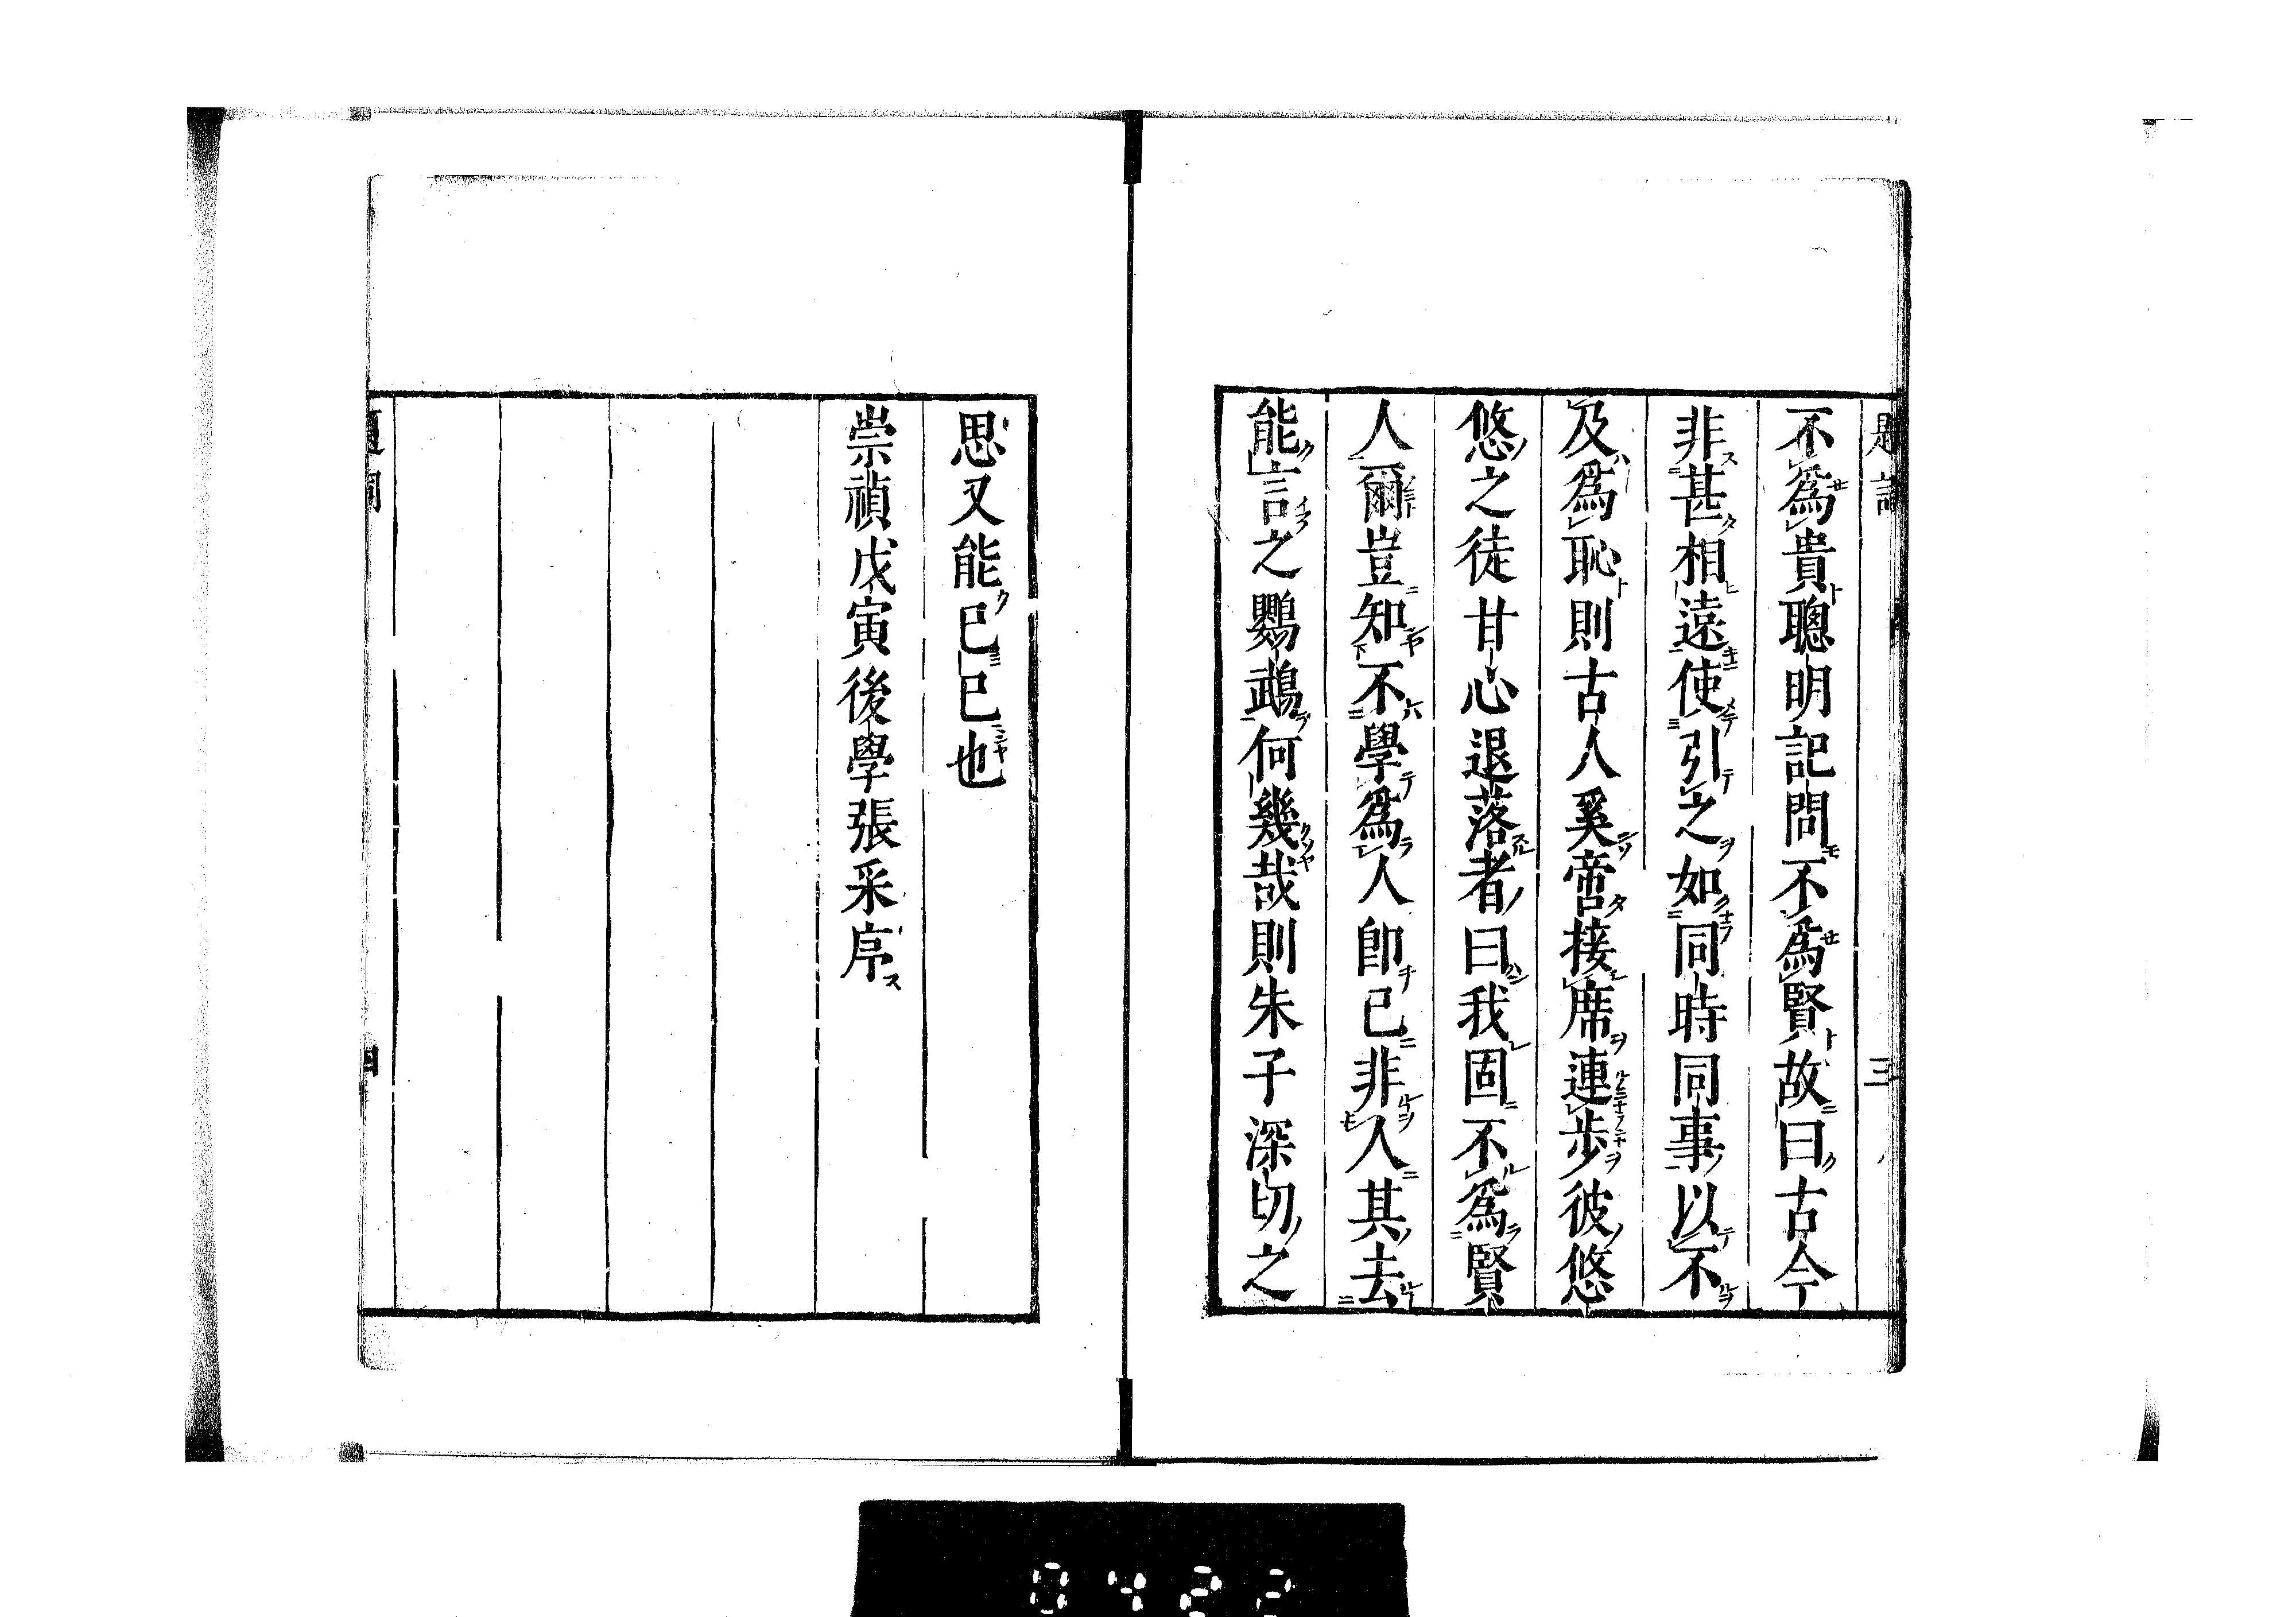 不為貴聰明記問不為賢故曰古今
非甚相遠使引之如同時同事以不
及為恥則古人奚啻接席連步彼悠
悠之徒甘心退落者曰我固不為賢
人爾豈知不學為人即已非人其去
能言之鸚鵡何幾哉則朱子深切之
三
思又能已已也
崇禎戊寅後學張采序
四
0422